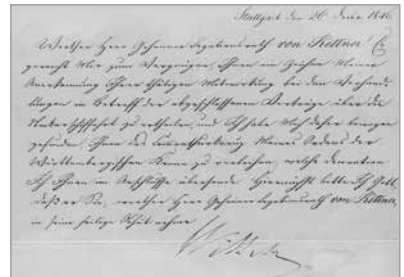 Stuttgart den 26. Decbr. 1846.
Werther Herr Geheimer Legationsrath von Kettner! Es
gereicht Mir zum Vergnügen, Ihnen ein Zeichen Meiner
Anerkennung Ihrer thätigen Mitwirkung bei den Verhand-
lungen in Betreff der abgeschlossenen Verträge über die
Neckarschifffahrt zu ertheilen, und Ich habe Mich daher bewogen
gefunden, Ihnen das Commenthurkreuz Meines Ordens der
Württembergischen Krone zu verleihen, welche Decoration
Ich Ihnen im Anschlusse übersende. Hiernächst bitte Ich Gott,
daß er Sie, werther Herr Geheimer Legationsrath von Kettner,
in seine heilige Schut nehme.
Wilhelm